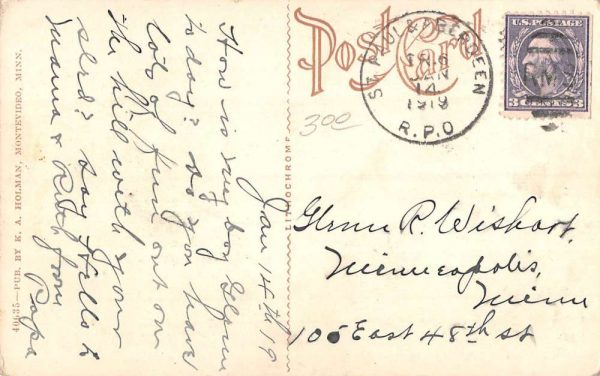 40635—PUB. BY K. A. HOLMAN, MONTEVIDEO, MINN.
Jan 14th 19
How is my boy Glenn
to day? do you have
lots of fun out on
the hill with your
sled? Say Hello to
Mama & Ruth from
Papa
LITHOCHROME
Post Card
ST. PAUL & ABERDEEN
TR.6
JAN
14
1919
R.P.O
U.S. POSTAGE
3 CENTS 3
300
Glenn R. Wishart,
Minneapolis,
Minn
105 East 48th st